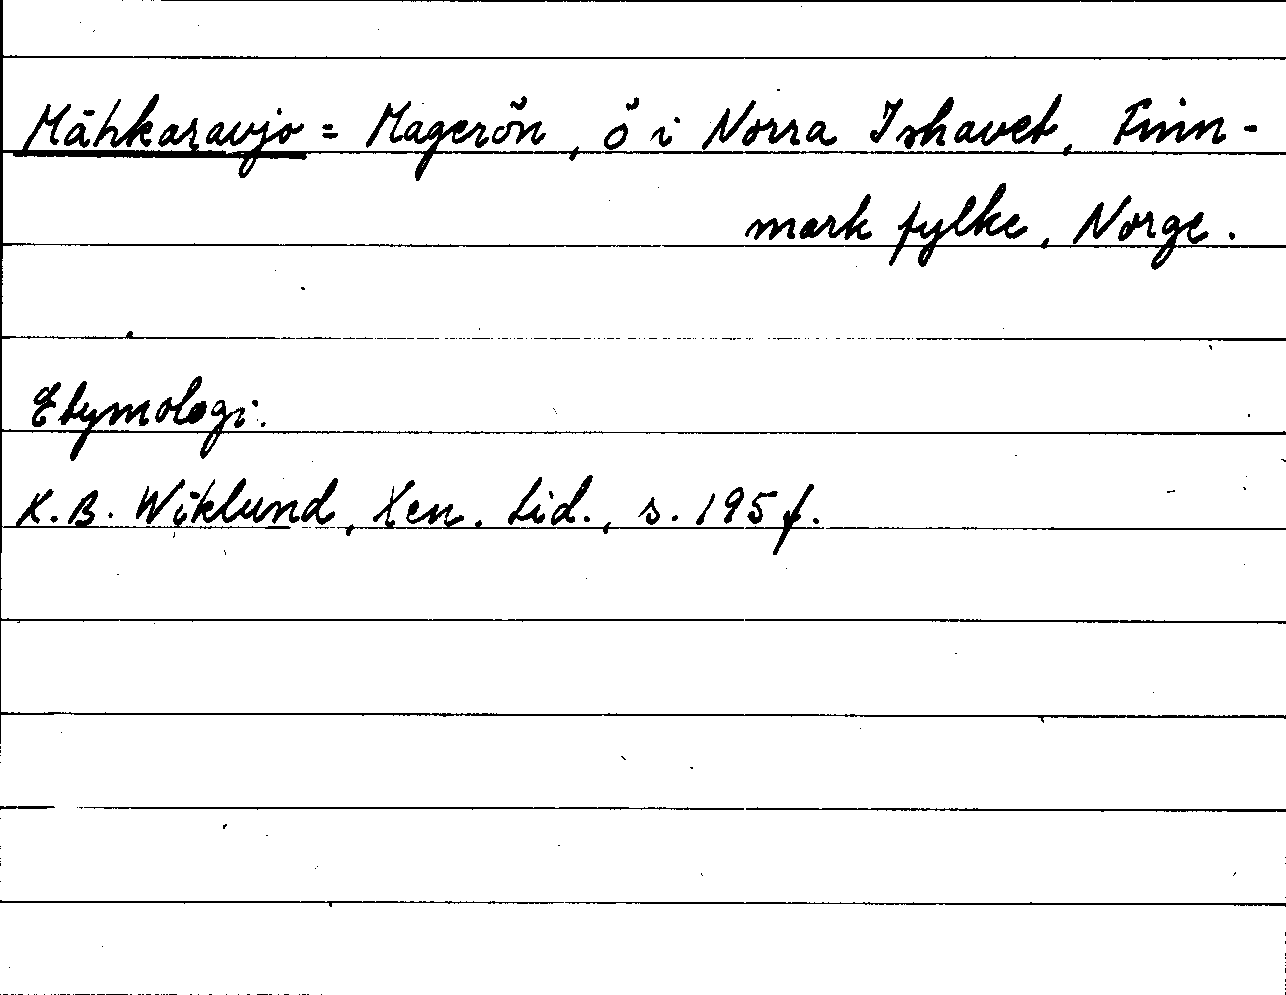 Māhkaravjo = Magerön, ö i Norra Ishavet, Finn-
mark fylke, Norge.
Etymologi.
K.B. Wiklund, Xen. Lid., s. 195 f.